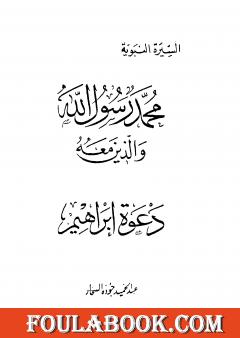 السيرة النبوية
محمد رسول الله
والذين معه
دعوة إبراهيم
عبد الحميد جودة السحار
FOULABOOK.COM